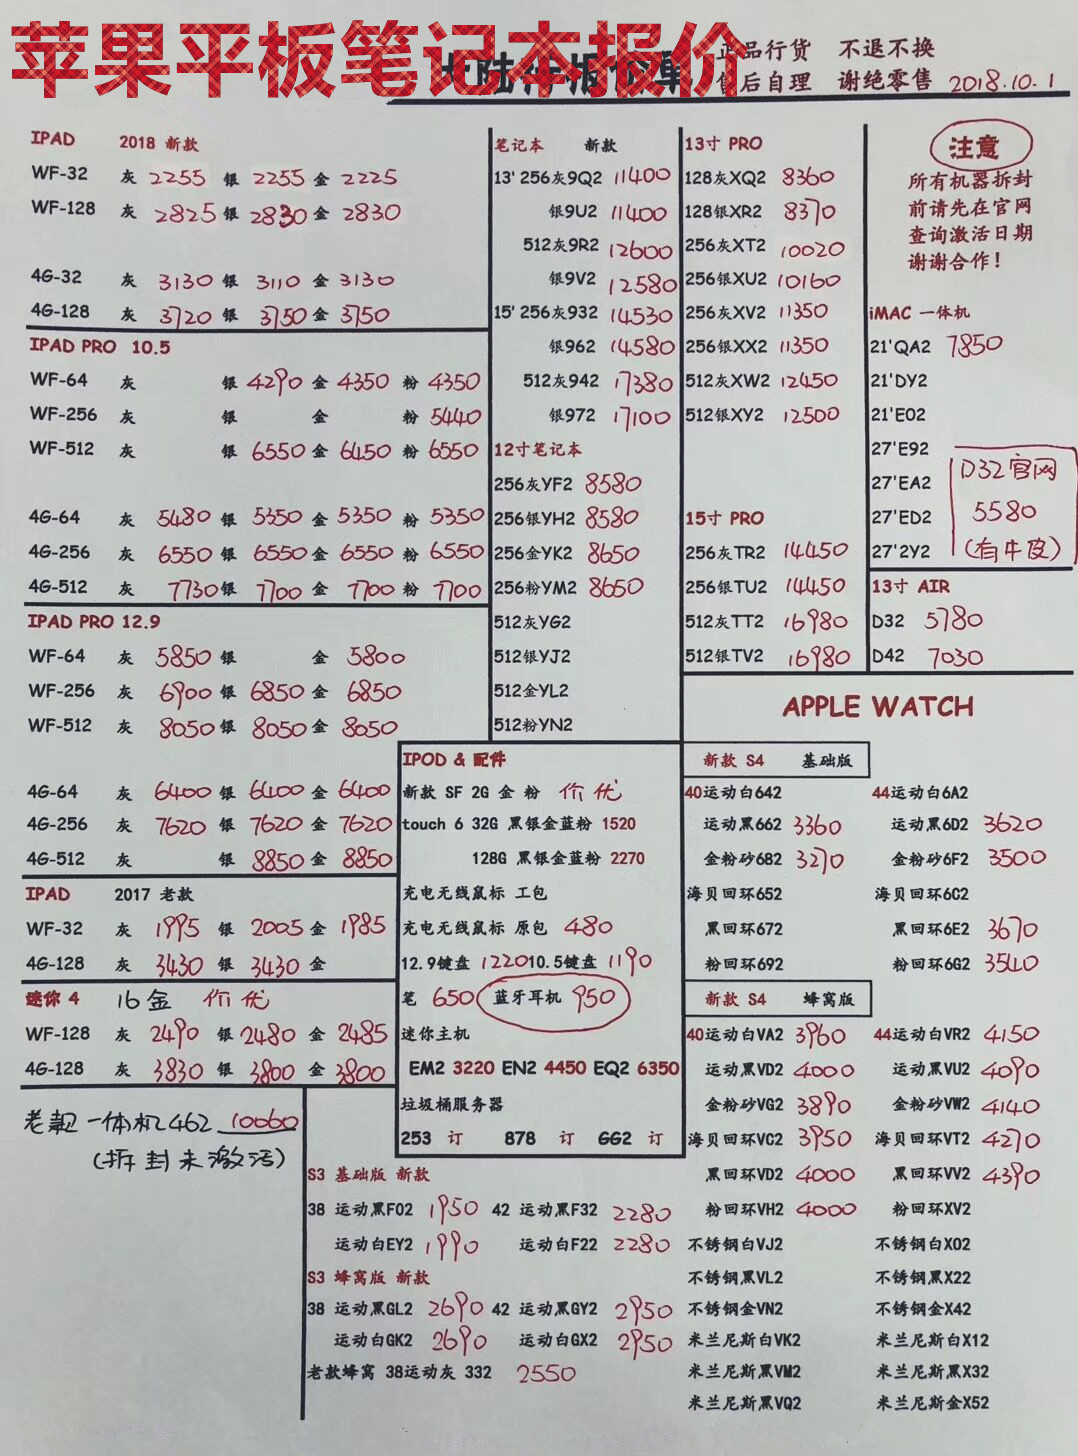 苹果平板笔记本报价
正品行货 不退不换
售后自理 谢绝零售 2018.10.1
IPAD 2018 新款
WF-32 灰 2255 银 2255 金 2225
WF-128 灰 2825 银 2830 金 2830
4G-32 灰 3130 银 3110 金 3130
4G-128 灰 3720 银 3750 金 3750
IPAD PRO 10.5
WF-64 灰 银 4290 金 4350 粉 4350
WF-256 灰 银 金 粉 5440
WF-512 灰 银 6550 金 6450 粉 6550
4G-64 灰 5480 银 5350 金 5350 粉 5350
4G-256 灰 6550 银 6550 金 6550 粉 6550
4G-512 灰 7730 银 7700 金 7700 粉 7700
IPAD PRO 12.9
WF-64 灰 5850 银 金 5800
WF-256 灰 6900 银 6850 金 6850
WF-512 灰 8050 银 8050 金 8050
4G-64 灰 6400 银 6400 金 6400
4G-256 灰 7620 银 7620 金 7620
4G-512 灰 银 8850 金 8850
IPAD 2017 老款
WF-32 灰 1995 银 2005 金 1985
4G-128 灰 3430 银 3430 金
迷你 4 16金 价优
WF-128 灰 2490 银 2480 金 2485
4G-128 灰 3830 银 3800 金 3800
老款一体机462 10060
(拆封未激活)
笔记本 新款
13' 256灰9Q2 11400
银9U2 11400
512灰9R2 12600
银9V2 12580
15' 256灰932 14530
银962 14580
512灰942 17380
银972 17100
12寸笔记本
256灰YF2 8580
256银YH2 8580
256金YK2 8650
256粉YM2 8650
512灰YG2
512银YJ2
512金YL2
512粉YN2
13寸 PRO
128灰XQ2 8360
128银XR2 8370
256灰XT2 10020
256银XU2 10160
256灰XV2 11350
256银XX2 11350
512灰XW2 12450
512银XY2 12500
15寸 PRO
256灰TR2 14450
256银TU2 14450
512灰TT2 16980
512银TV2 16980
注意
所有机器拆封
前请先在官网
查询激活日期
谢谢合作!
iMAC 一体机
21'QA2 7850
21'DY2
21'E02
27'E92
27'EA2
27'ED2
27'2Y2
D32官网
5580
(有牛皮)
13寸 AIR
D32 5780
D42 7030
IPOD & 配件
新款 SF 2G 金 粉 价优
touch 6 32G 黑银金蓝粉 1520
128G 黑银金蓝粉 2270
充电无线鼠标 工包
充电无线鼠标 原包 480
12.9键盘 1220 10.5键盘 1190
笔 650 蓝牙耳机 950
迷你主机
EM2 3220 EN2 4450 EQ2 6350
垃圾桶服务器
253 订 878 订 GG2 订
S3 基础版 新款
38 运动黑F02 1950 42 运动黑F32 2280
运动白EY2 1990 运动白F22 2280
S3 蜂窝版 新款
38 运动黑GL2 2690 42 运动黑GY2 2950
运动白GK2 2690 运动白GX2 2950
老款蜂窝 38运动灰 332 2550
APPLE WATCH
新款 S4 基础版
40运动白642 44运动白6A2
运动黑662 3360 运动黑6D2 3620
金粉砂682 3270 金粉砂6F2 3500
海贝回环652 海贝回环6C2
黑回环672 黑回环6E2 3670
粉回环692 粉回环6G2 3540
新款 S4 蜂窝版
40运动白VA2 3960 44运动白VR2 4150
运动黑VD2 4000 运动黑VU2 4090
金粉砂VG2 3890 金粉砂VW2 4140
海贝回环VC2 3950 海贝回环VT2 4270
黑回环VD2 4000 黑回环VV2 4390
粉回环VH2 4000 粉回环XV2
不锈钢白VJ2 不锈钢白X02
不锈钢黑VL2 不锈钢黑X22
不锈钢金VN2 不锈钢金X42
米兰尼斯白VK2 米兰尼斯白X12
米兰尼斯黑VM2 米兰尼斯黑X32
米兰尼斯黑VQ2 米兰尼斯金X52